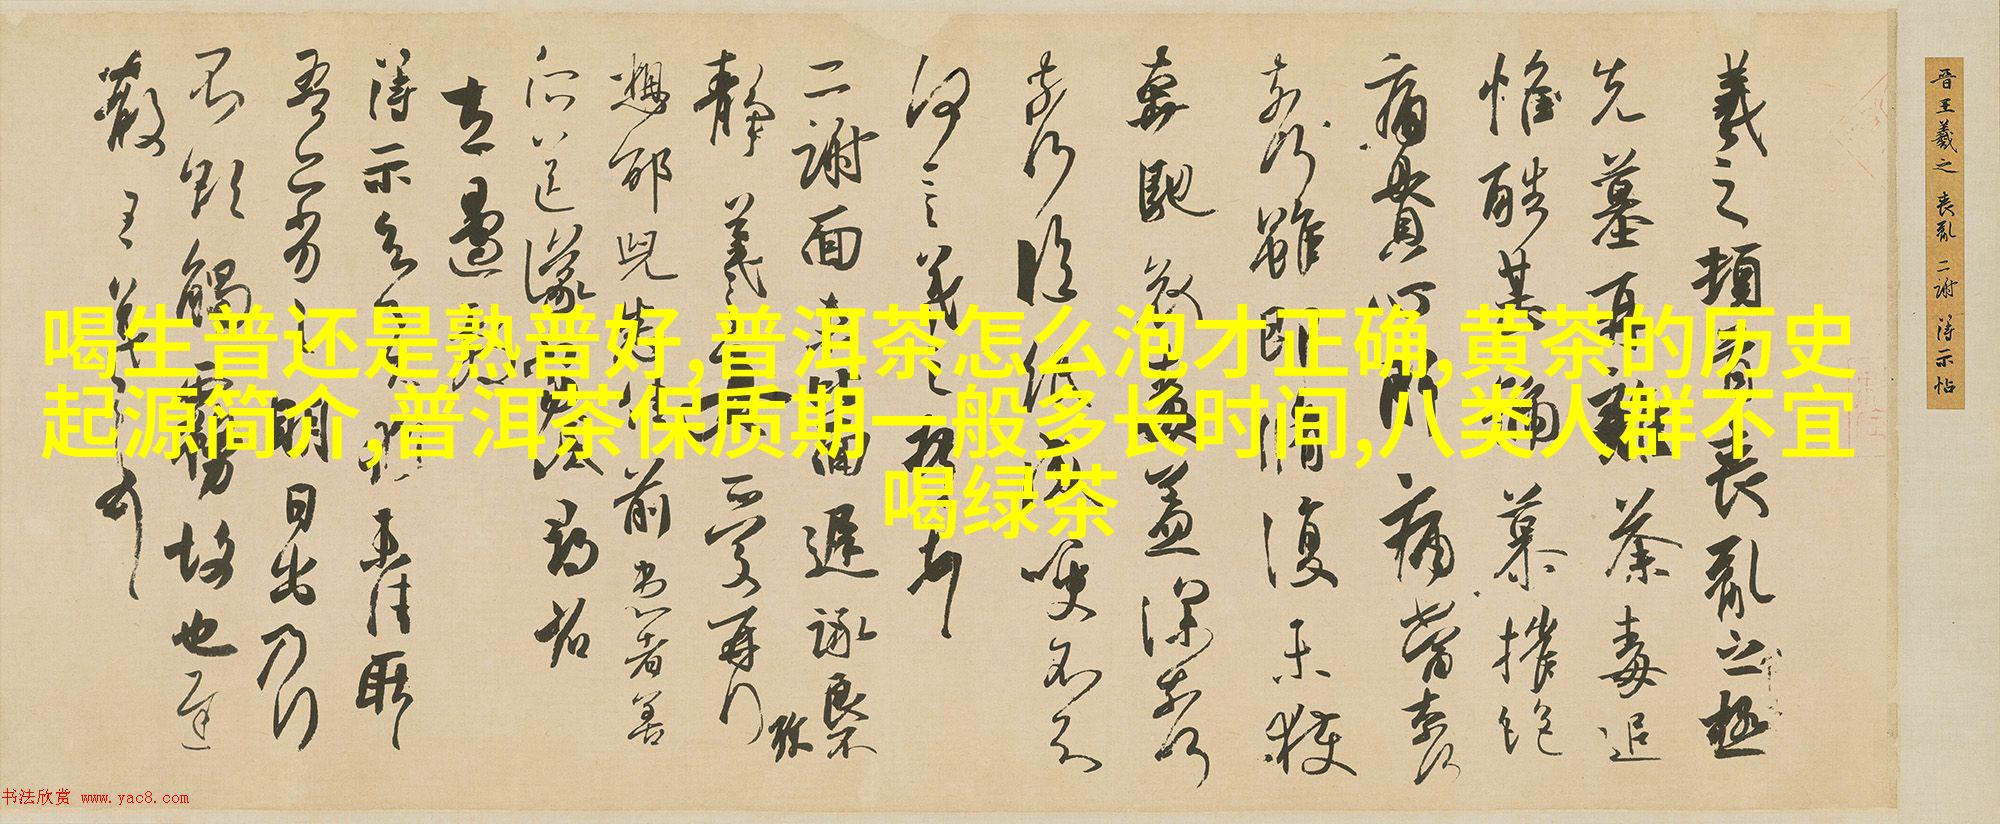 喝生普还是熟普好,普洱茶怎么泡才正确,黄茶的历史
起源简介,普洱茶保质期一般多长时间,八类人群不宜
喝绿茶
晉王羲之 喪亂 二謝 得示帖
羲之頓首喪亂之極
先墓再離荼毒追
惟酷甚號慕摧絕
痛貫心肝痛當奈何
奈何雖即脩復未獲
奔馳哀毒益深奈何
奈何臨紙感哽不知
何言羲之頓首頓首
二謝面未比面遲詠良不
靜羲之女愛再拜
想邵兒悉佳前患者善
所送議當試尋省
左邊劇
得示知足下猶未佳耿耿
吾亦劣劣明日出乃行
不欲觸霧故也遲
散王羲之頓首
书法欣赏 www.yac8.com